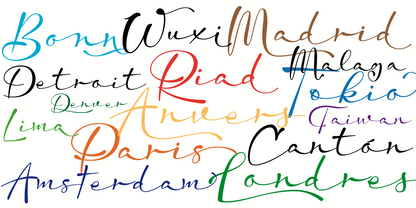 Bonn Wuxi Madrid
Detroit Riad Malaga
Denver Tokio
Lima Anvers Taiwan
Paris Cantón
Amsterdam Londres